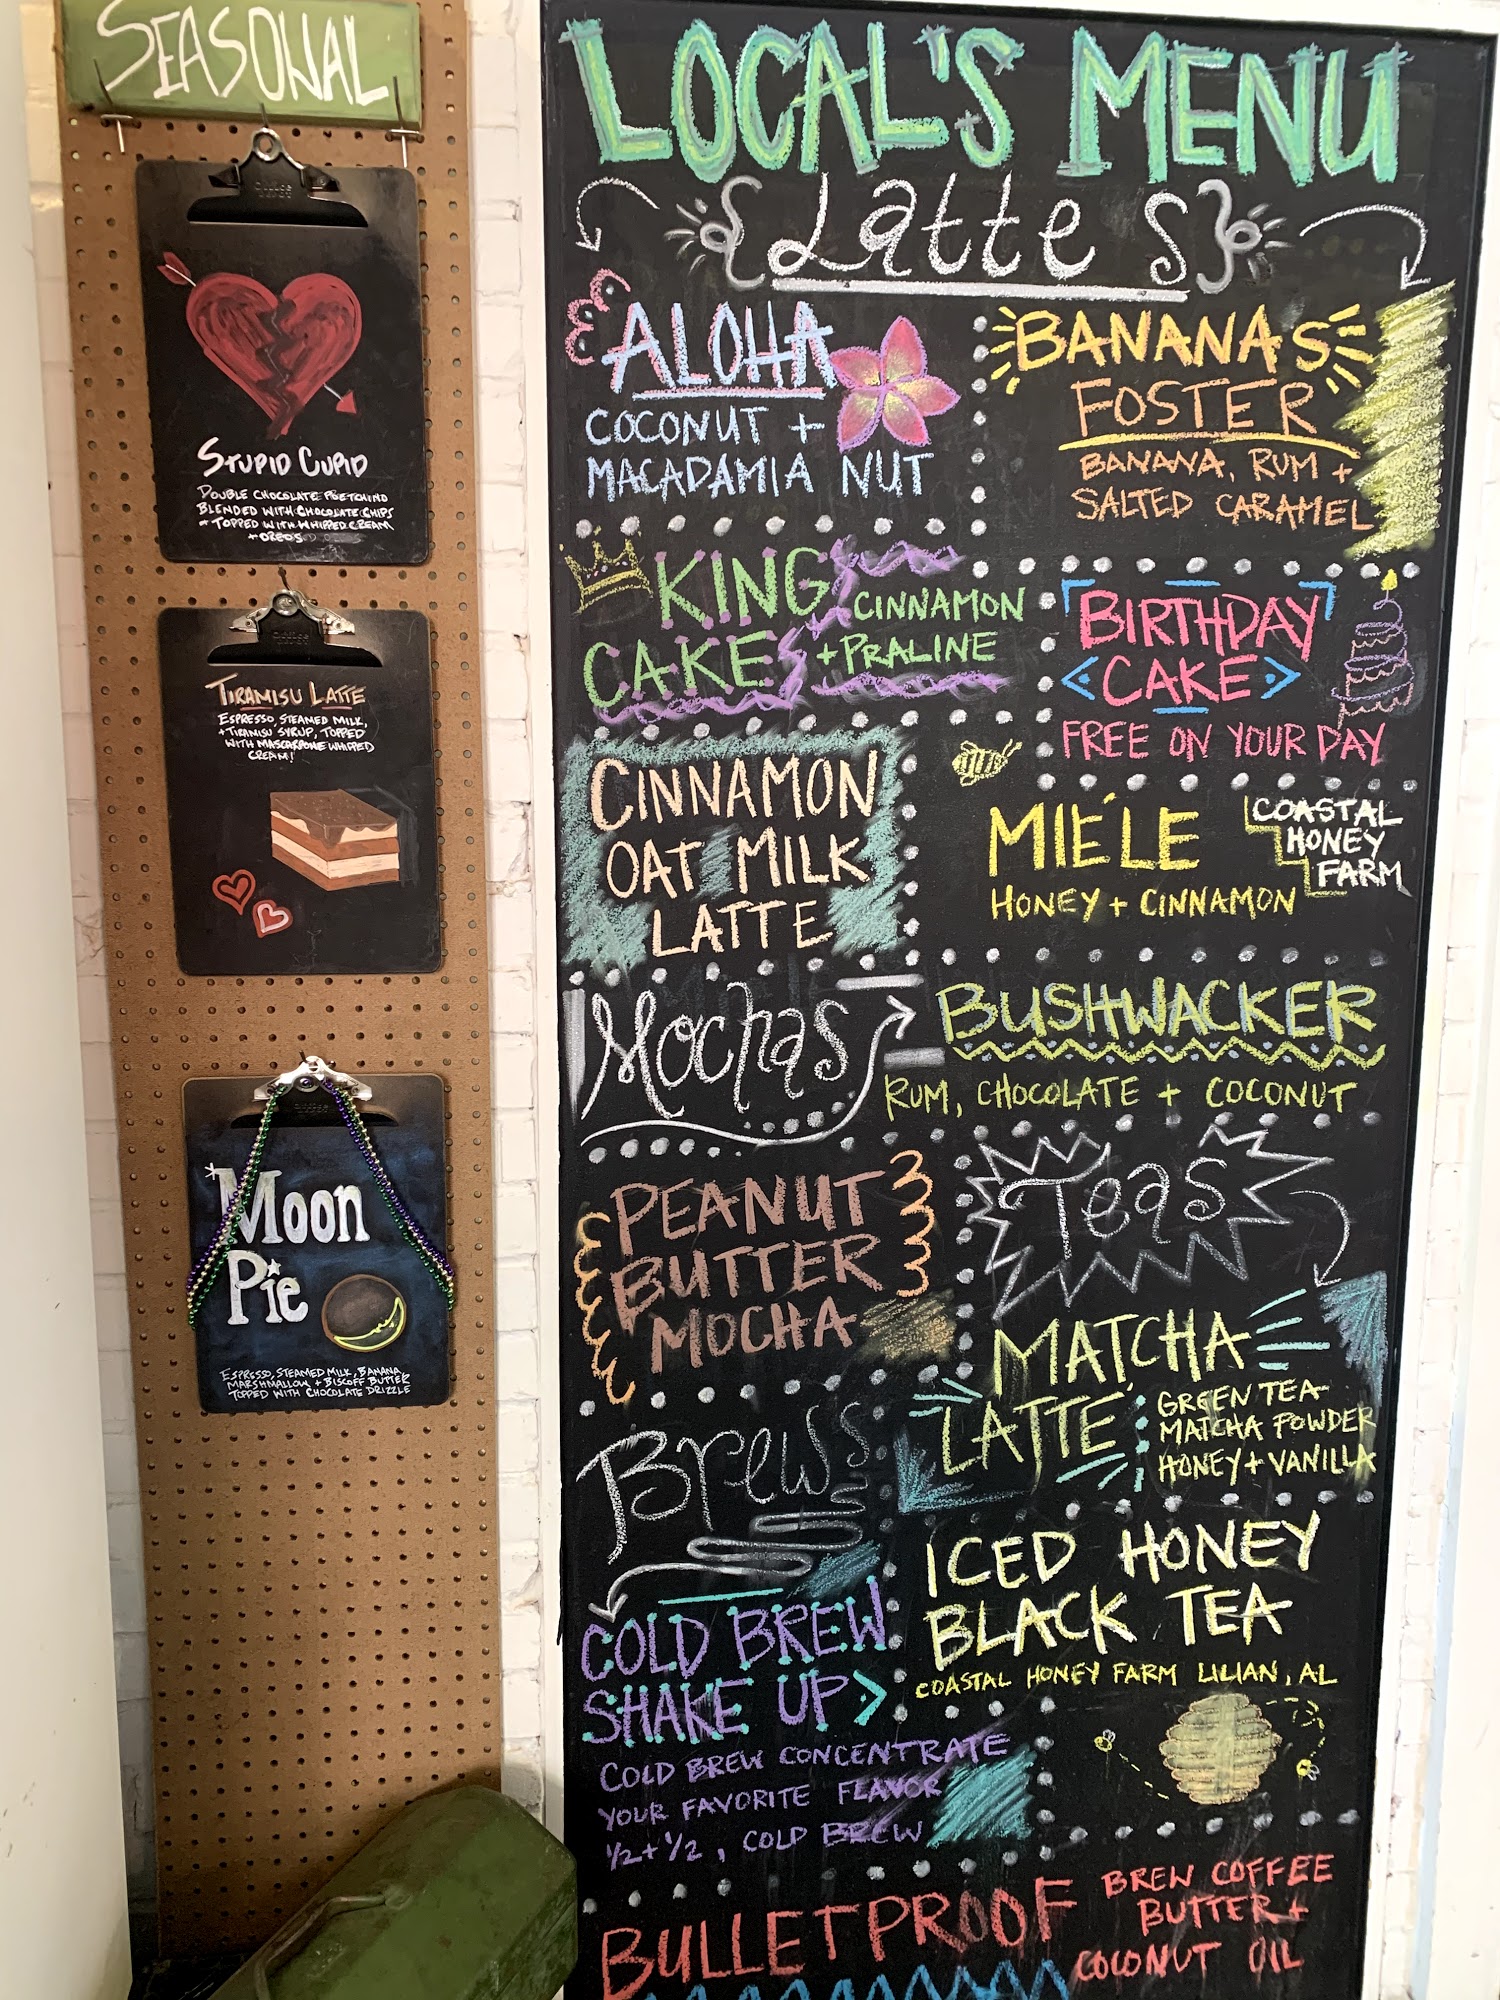 SEASONAL
STUPID CUPID
DOUBLE CHOCOLATE FOETCHINO
BLENDED WITH CHOCOLATE CHIPS
+ TOPPED WITH WHIPPED CREAM
+ OREOS
TIRAMISU LATTE
ESPRESSO, STEAMED MILK,
+ TIRAMISU SYRUP, TOPPED
WITH MASCARPONE WHIPPED
CREAM!
MOON
PIE
ESPRESSO, STEAMED MILK, BANANA,
MARSHMALLOW, + BISCOFF BUTTER
TOPPED WITH CHOCOLATE DRIZZLE
LOCAL'S MENU
Lattes
ALOHA
COCONUT +
MACADAMIA NUT
BANANAS
FOSTER
BANANA, RUM +
SALTED CARAMEL
KING
CAKE
CINNAMON
+ PRALINE
BIRTHDAY
CAKE
FREE ON YOUR DAY
CINNAMON
OAT MILK
LATTE
MIÉLE
COASTAL
HONEY
FARM
HONEY + CINNAMON
Mochas
BUSHWACKER
RUM, CHOCOLATE + COCONUT
PEANUT
BUTTER
MOCHA
Teas
MATCHA
LATTE
GREEN TEA
MATCHA POWDER
HONEY + VANILLA
ICED HONEY
BLACK TEA
COASTAL HONEY FARM LILIAN, AL
Brews
COLD BREW
SHAKE UP
COLD BREW CONCENTRATE
YOUR FAVORITE FLAVOR
1/2 + 1/2, COLD BREW
BULLETPROOF
BREW COFFEE
BUTTER +
COCONUT OIL